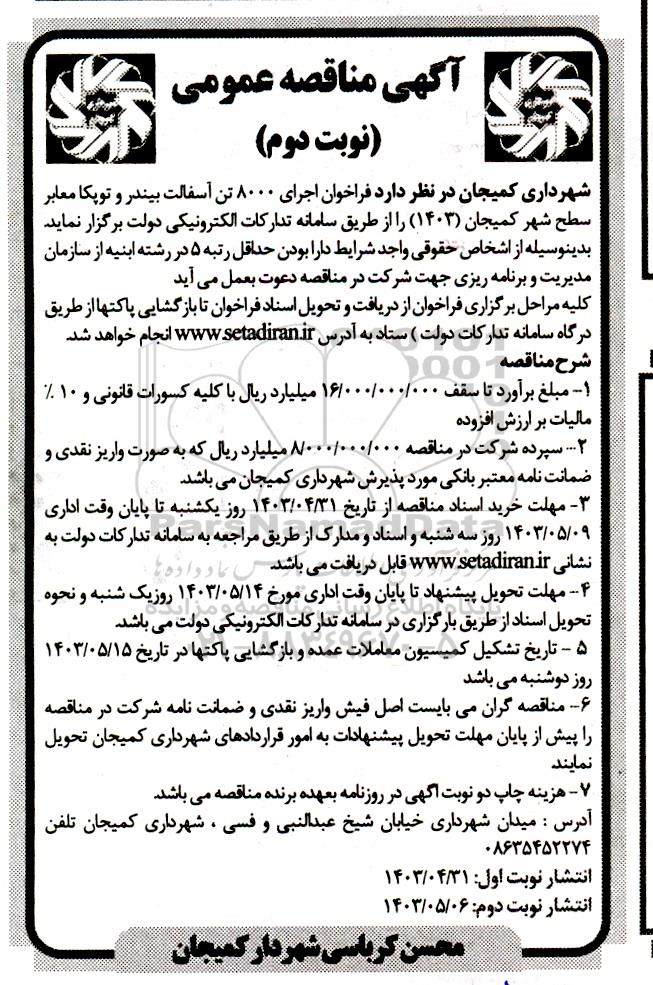 آگهی مناقصه عمومی
(نوبت دوم)
شهرداری کمیجان در نظر دارد فراخوان اجرای ۸۰۰۰ تن آسفالت بیندر و توپکا معابر
سطح شهر کمیجان (۱۴۰۳) را از طریق سامانه تدارکات الکترونیکی دولت برگزار نماید.
بدینوسیله از اشخاص حقوقی واجد شرایط دارا بودن حداقل رتبه ۵ در رشته ابنیه از سازمان
مدیریت و برنامه ریزی جهت شرکت در مناقصه دعوت بعمل می آید
کلیه مراحل برگزاری فراخوان از دریافت و تحویل اسناد فراخوان تا بازگشایی پاکتها از طریق
درگاه سامانه تدارکات دولت ) ستاد به آدرس www.setadiran.ir انجام خواهد شد.
شرح مناقصه
۱- مبلغ برآورد تا سقف ۱۶/۰۰۰/۰۰۰/۰۰۰ میلیارد ریال با کلیه کسورات قانونی و ۱۰ ٪
مالیات بر ارزش افزوده
۲- سپرده شرکت در مناقصه ۸/۰۰۰/۰۰۰/۰۰۰ میلیارد ریال که به صورت واریز نقدی و
ضمانت نامه معتبر بانکی مورد پذیرش شهرداری کمیجان می باشد.
۳- مهلت خرید اسناد مناقصه از تاریخ ۱۴۰۳/۰۴/۳۱ روز یکشنبه تا پایان وقت اداری
۱۴۰۳/۰۵/۰۹ روز سه شنبه و اسناد و مدارک از طریق مراجعه به سامانه تدارکات دولت به
نشانی www.setadiran.ir قابل دریافت می باشد.
۴- مهلت تحویل پیشنهاد تا پایان وقت اداری مورخ ۱۴۰۳/۰۵/۱۴ روزیک شنبه و نحوه
تحویل اسناد از طریق بارگزاری در سامانه تدارکات الکترونیکی دولت می باشد.
۵ - تاریخ تشکیل کمیسیون معاملات عمده و بازگشایی پاکتها در تاریخ ۱۴۰۳/۰۵/۱۵
روز دوشنبه می باشد
۶- مناقصه گران می بایست اصل فیش واریز نقدی و ضمانت نامه شرکت در مناقصه
را پیش از پایان مهلت تحویل پیشنهادات به امور قراردادهای شهرداری کمیجان تحویل
نمایند.
۷- هزینه چاپ دو نوبت اگهی در روزنامه بعهده برنده مناقصه می باشد.
آدرس : میدان شهرداری خیابان شیخ عبدالنبی و فسی ، شهرداری کمیجان تلفن
۰۸۶۳۵۴۵۲۲۷۴
انتشار نوبت اول: ۱۴۰۳/۰۴/۳۱
انتشار نوبت دوم: ۱۴۰۳/۰۵/۰۶
محسن کرباسی شهردار کمیجان
ParsNamadData
پایگاه اطلاع رسانی مناقصه و مزایده